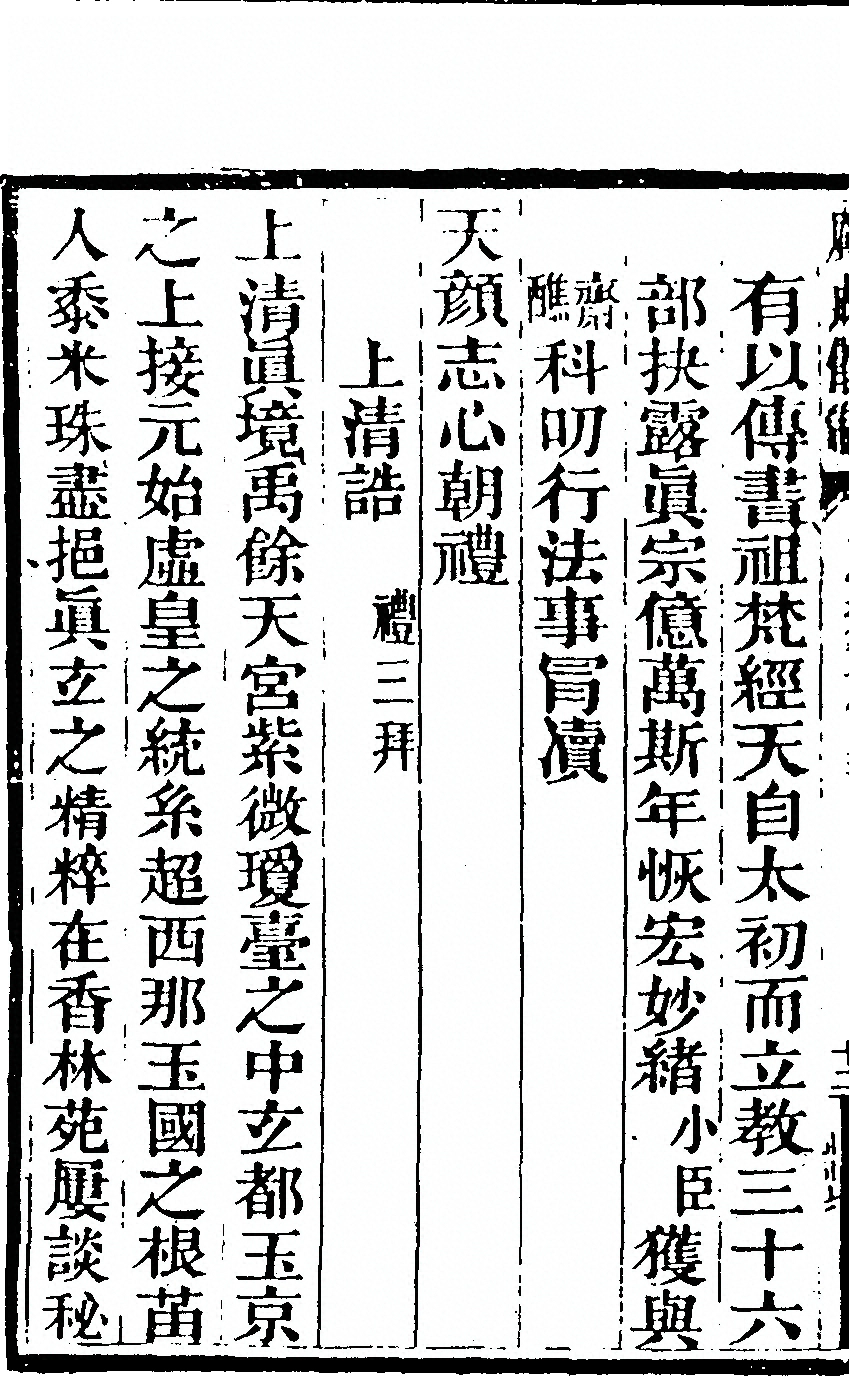 有以傳書祖梵經天自太初而立教三十六
部抉露眞宗億萬斯年恢宏妙緒小臣獲與
齋醮科叨行法事冐瀆
天顔志心朝禮
上清誥 禮三拜
上清眞境禹餘天宮紫微瓊臺之中立都玉京
之上接元始虛皇之統系超西那玉國之根苗
人黍米珠盡挹眞立之精粹在香林苑屢談秘